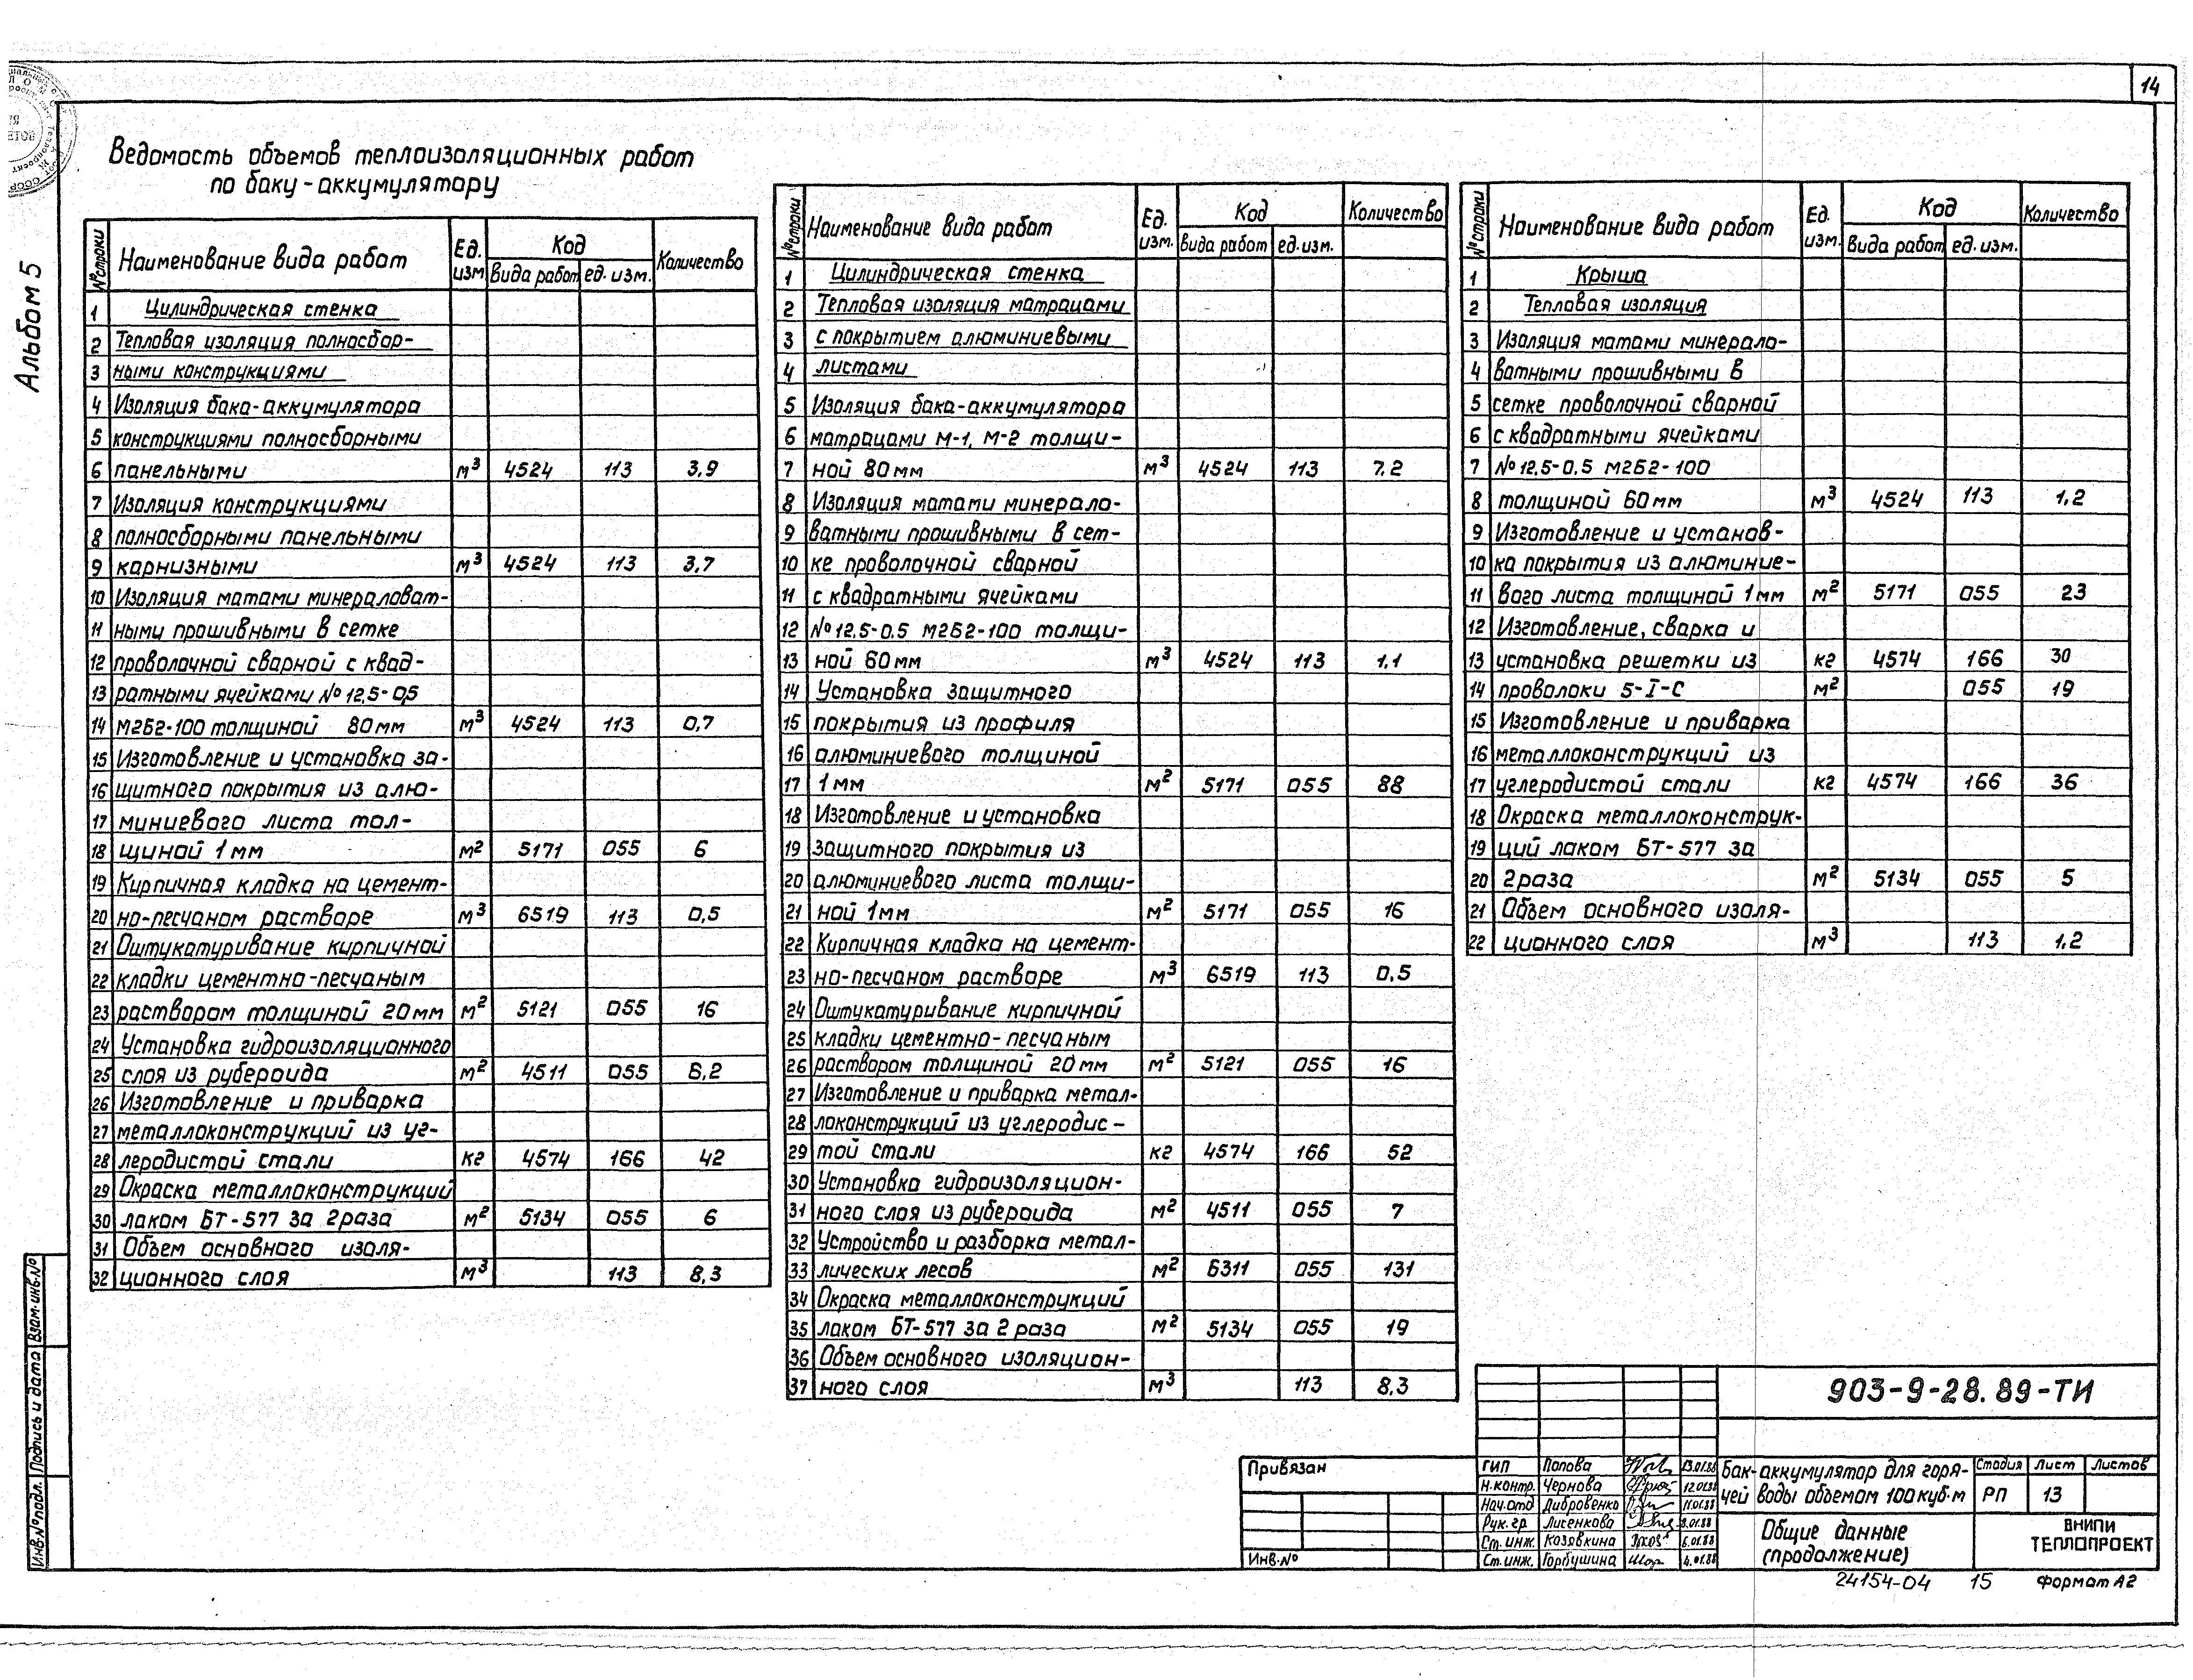 14
Альбом 5
Ведомость объемов теплоизоляционных работ
по баку-аккумулятору
№ строки Наименование вида работ Ед. изм. Код Количество
Вида работ ед. изм.
1 Цилиндрическая стенка
2 Тепловая изоляция полносбор-
3 ными конструкциями
4 Изоляция бака-аккумулятора
5 конструкциями полносборными
6 панельными м³ 4524 113 3,9
7 Изоляция конструкциями
8 полносборными панельными
9 карнизными м³ 4524 113 3,7
10 Изоляция матами минераловат-
11 ными прошивными в сетке
12 проволочной сварной с квад-
13 ратными ячейками № 12,5-0,5
14 М2Б2-100 толщиной 80 мм м³ 4524 113 0,7
15 Изготовление и установка за-
16 щитного покрытия из алю-
17 миниевого листа тол-
18 щиной 1 мм м² 5171 055 6
19 Кирпичная кладка на цемент-
20 но-песчаном растворе м³ 6519 113 0,5
21 Оштукатуривание кирпичной
22 кладки цементно-песчаным
23 раствором толщиной 20 мм м² 5121 055 16
24 Установка гидроизоляционного
25 слоя из рубероида м² 4511 055 6,2
26 Изготовление и приварка
27 металлоконструкций из уг-
28 леродистой стали кг 4574 166 42
29 Окраска металлоконструкций
30 лаком БТ-577 за 2 раза м² 5134 055 6
31 Объем основного изоля-
32 ционного слоя м³ 113 8,3
№ строки Наименование вида работ Ед. изм. Код Количество
Вида работ ед. изм.
1 Цилиндрическая стенка
2 Тепловая изоляция матрацами
3 с покрытием алюминиевыми
4 листами
5 Изоляция бака-аккумулятора
6 матрацами М-1, М-2 толщи-
7 ной 80 мм м³ 4524 113 7,2
8 Изоляция матами минерало-
9 ватными прошивными в сет-
10 ке проволочной сварной
11 с квадратными ячейками
12 № 12,5-0,5 М2Б2-100 толщи-
13 ной 60 мм м³ 4524 113 1,1
14 Установка защитного
15 покрытия из профиля
16 алюминиевого толщиной
17 1 мм м² 5171 055 88
18 Изготовление и установка
19 защитного покрытия из
20 алюминиевого листа толщи-
21 ной 1 мм м² 5171 055 16
22 Кирпичная кладка на цемент-
23 но-песчаном растворе м³ 6519 113 0,5
24 Оштукатуривание кирпичной
25 кладки цементно-песчаным
26 раствором толщиной 20 мм м² 5121 055 16
27 Изготовление и приварка метал-
28 локонструкций из углеродис-
29 той стали кг 4574 166 52
30 Установка гидроизоляцион-
31 ного слоя из рубероида м² 4511 055 7
32 Устройство и разборка метал-
33 лических лесов м² 6311 055 131
34 Окраска металлоконструкций
35 лаком БТ-577 за 2 раза м² 5134 055 19
36 Объем основного изоляцион-
37 ного слоя м³ 113 8,3
№ строки Наименование вида работ Ед. изм. Код Количество
Вида работ ед. изм.
1 Крыша
2 Тепловая изоляция
3 Изоляция матами минерало-
4 ватными прошивными в
5 сетке проволочной сварной
6 с квадратными ячейками
7 № 12,5-0,5 М2Б2-100
8 толщиной 60 мм м³ 4524 113 1,2
9 Изготовление и установ-
10 ка покрытия из алюминие-
11 вого листа толщиной 1 мм м² 5171 055 23
12 Изготовление, сварка и
13 установка решетки из кг 4574 166 30
14 проволоки 5-I-С м² 055 19
15 Изготовление и приварка
16 металлоконструкций из
17 углеродистой стали кг 4574 166 36
18 Окраска металлоконструк-
19 ций лаком БТ-577 за
20 2 раза м² 5134 055 5
21 Объем основного изоля-
22 ционного слоя м³ 113 1,2
Инв.№ подл. Подпись и дата Взам.инв.№
Привязан
Инв.№
903-9-28.89-ТИ
ГИП Попова 13.01.88
Н.контр. Чернова 12.01.88
Нач.отд Дибровенко 11.01.88
Рук.гр. Лисенкова 8.01.88
Ст.инж. Козявкина 6.01.88
Ст.инж. Горбушина 4.01.88
Бак-аккумулятор для горя-
чей воды объемом 100 куб.м
Стадия Лист Листов
РП 13
Общие данные
(продолжение)
ВНИПИ
ТЕПЛОПРОЕКТ
24154-04 15 Формат А2